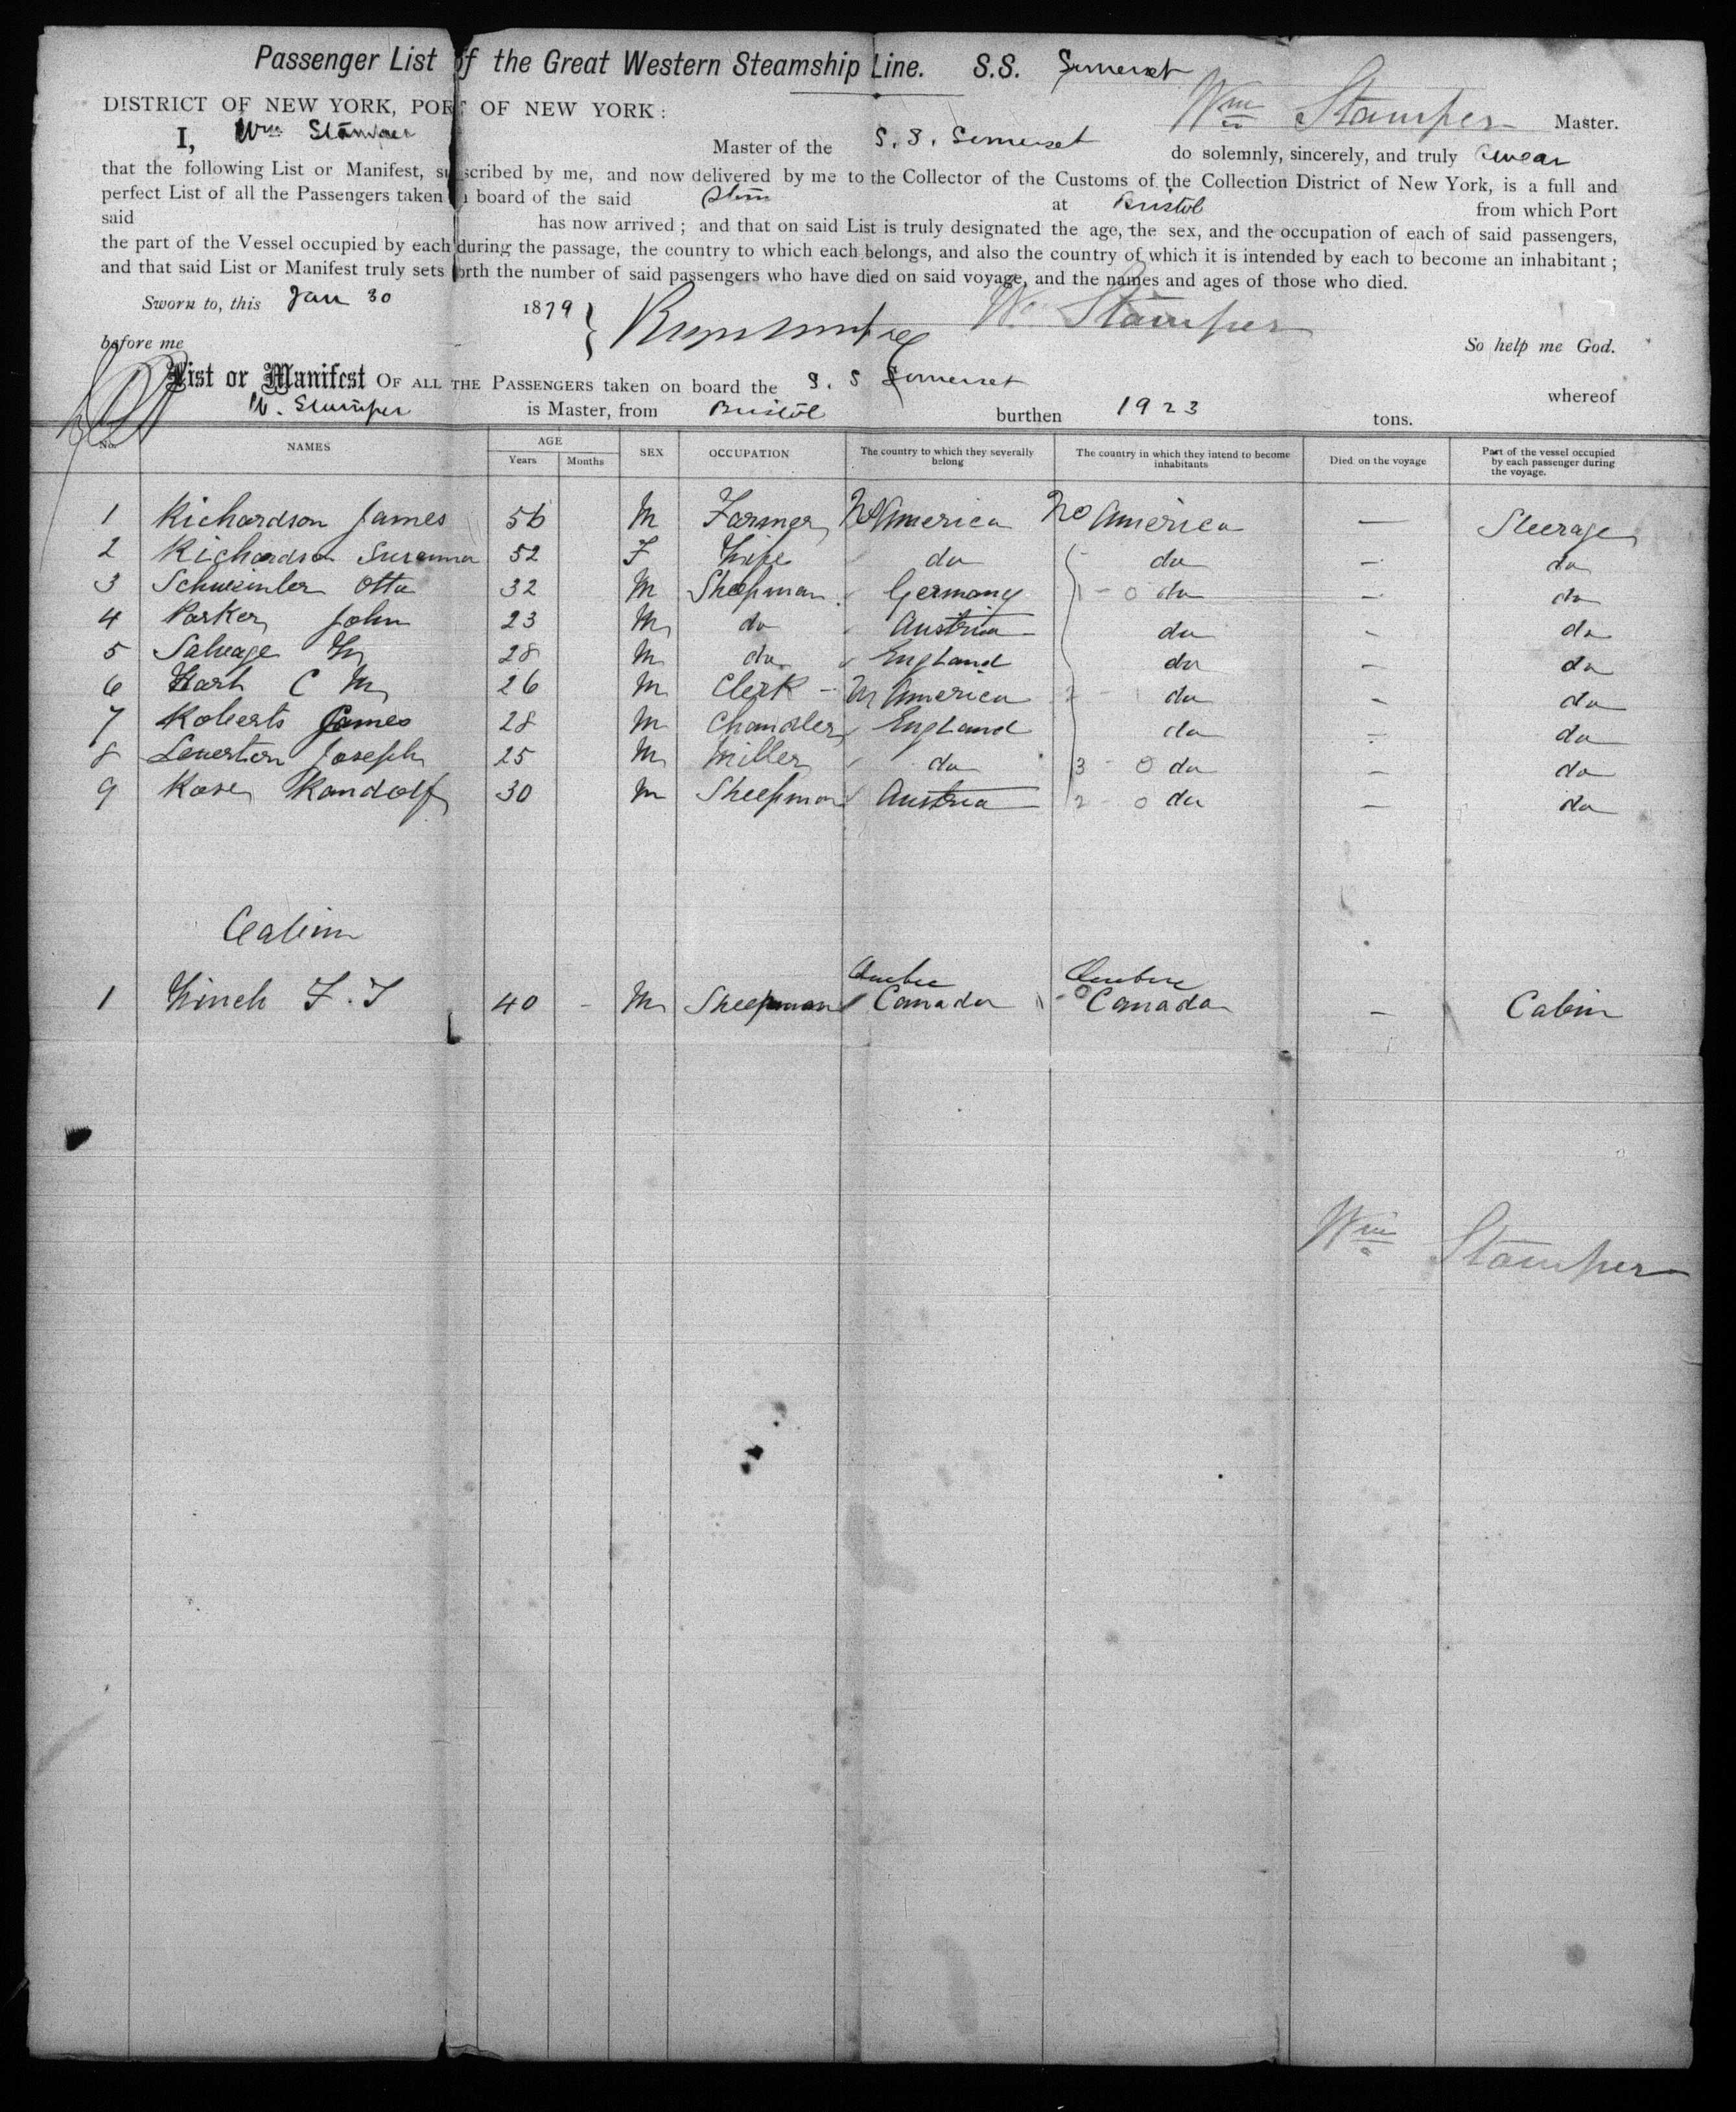 Passenger List of the Great Western Steamship Line. S.S. Somerset
DISTRICT OF NEW YORK, PORT OF NEW YORK: Wm Stamper Master.
I, Wm Stamper Master of the S. S. Somerset do solemnly, sincerely, and truly swear
that the following List or Manifest, subscribed by me, and now delivered by me to the Collector of the Customs of the Collection District of New York, is a full and
perfect List of all the Passengers taken on board of the said at Bristol from which Port
said has now arrived; and that on said List is truly designated the age, the sex, and the occupation of each of said passengers,
the part of the Vessel occupied by each during the passage, the country to which each belongs, and also the country of which it is intended by each to become an inhabitant;
and that said List or Manifest truly sets forth the number of said passengers who have died on said voyage, and the names and ages of those who died.
Sworn to, this Jan 30 1879 } Wm Stamper
before me So help me God.
List or Manifest OF ALL THE PASSENGERS taken on board the S. S Somerset whereof
W. Stamper is Master, from Bristol burthen 1923 tons.
No. NAMES AGE Years Months SEX OCCUPATION The country to which they severally belong The country in which they intend to become inhabitants Died on the voyage Part of the vessel occupied by each passenger during the voyage.
1 Richardson James 56 M Farmer No America No America — Steerage
2 Richardson Susanna 52 F Wife do do — do
3 Otto 32 M Shopman Germany 1 - 0 do — do
4 Parker John 23 M do Austria do - do
5 Salvage 28 M do England do - do
6 C M 26 M Clerk - America 2 - 1 do - do
7 Roberts James 28 M Chandler England do - do
8 Leverton Joseph 25 M Miller do 3 - 0 do - do
9 Rose Randolf 30 M Sheepman Austria 2 - 0 do — do
Cabin
Quebec Quebec
1 40 - M Sheepman Canada - 0 Canada - Cabin
Wm Stamper